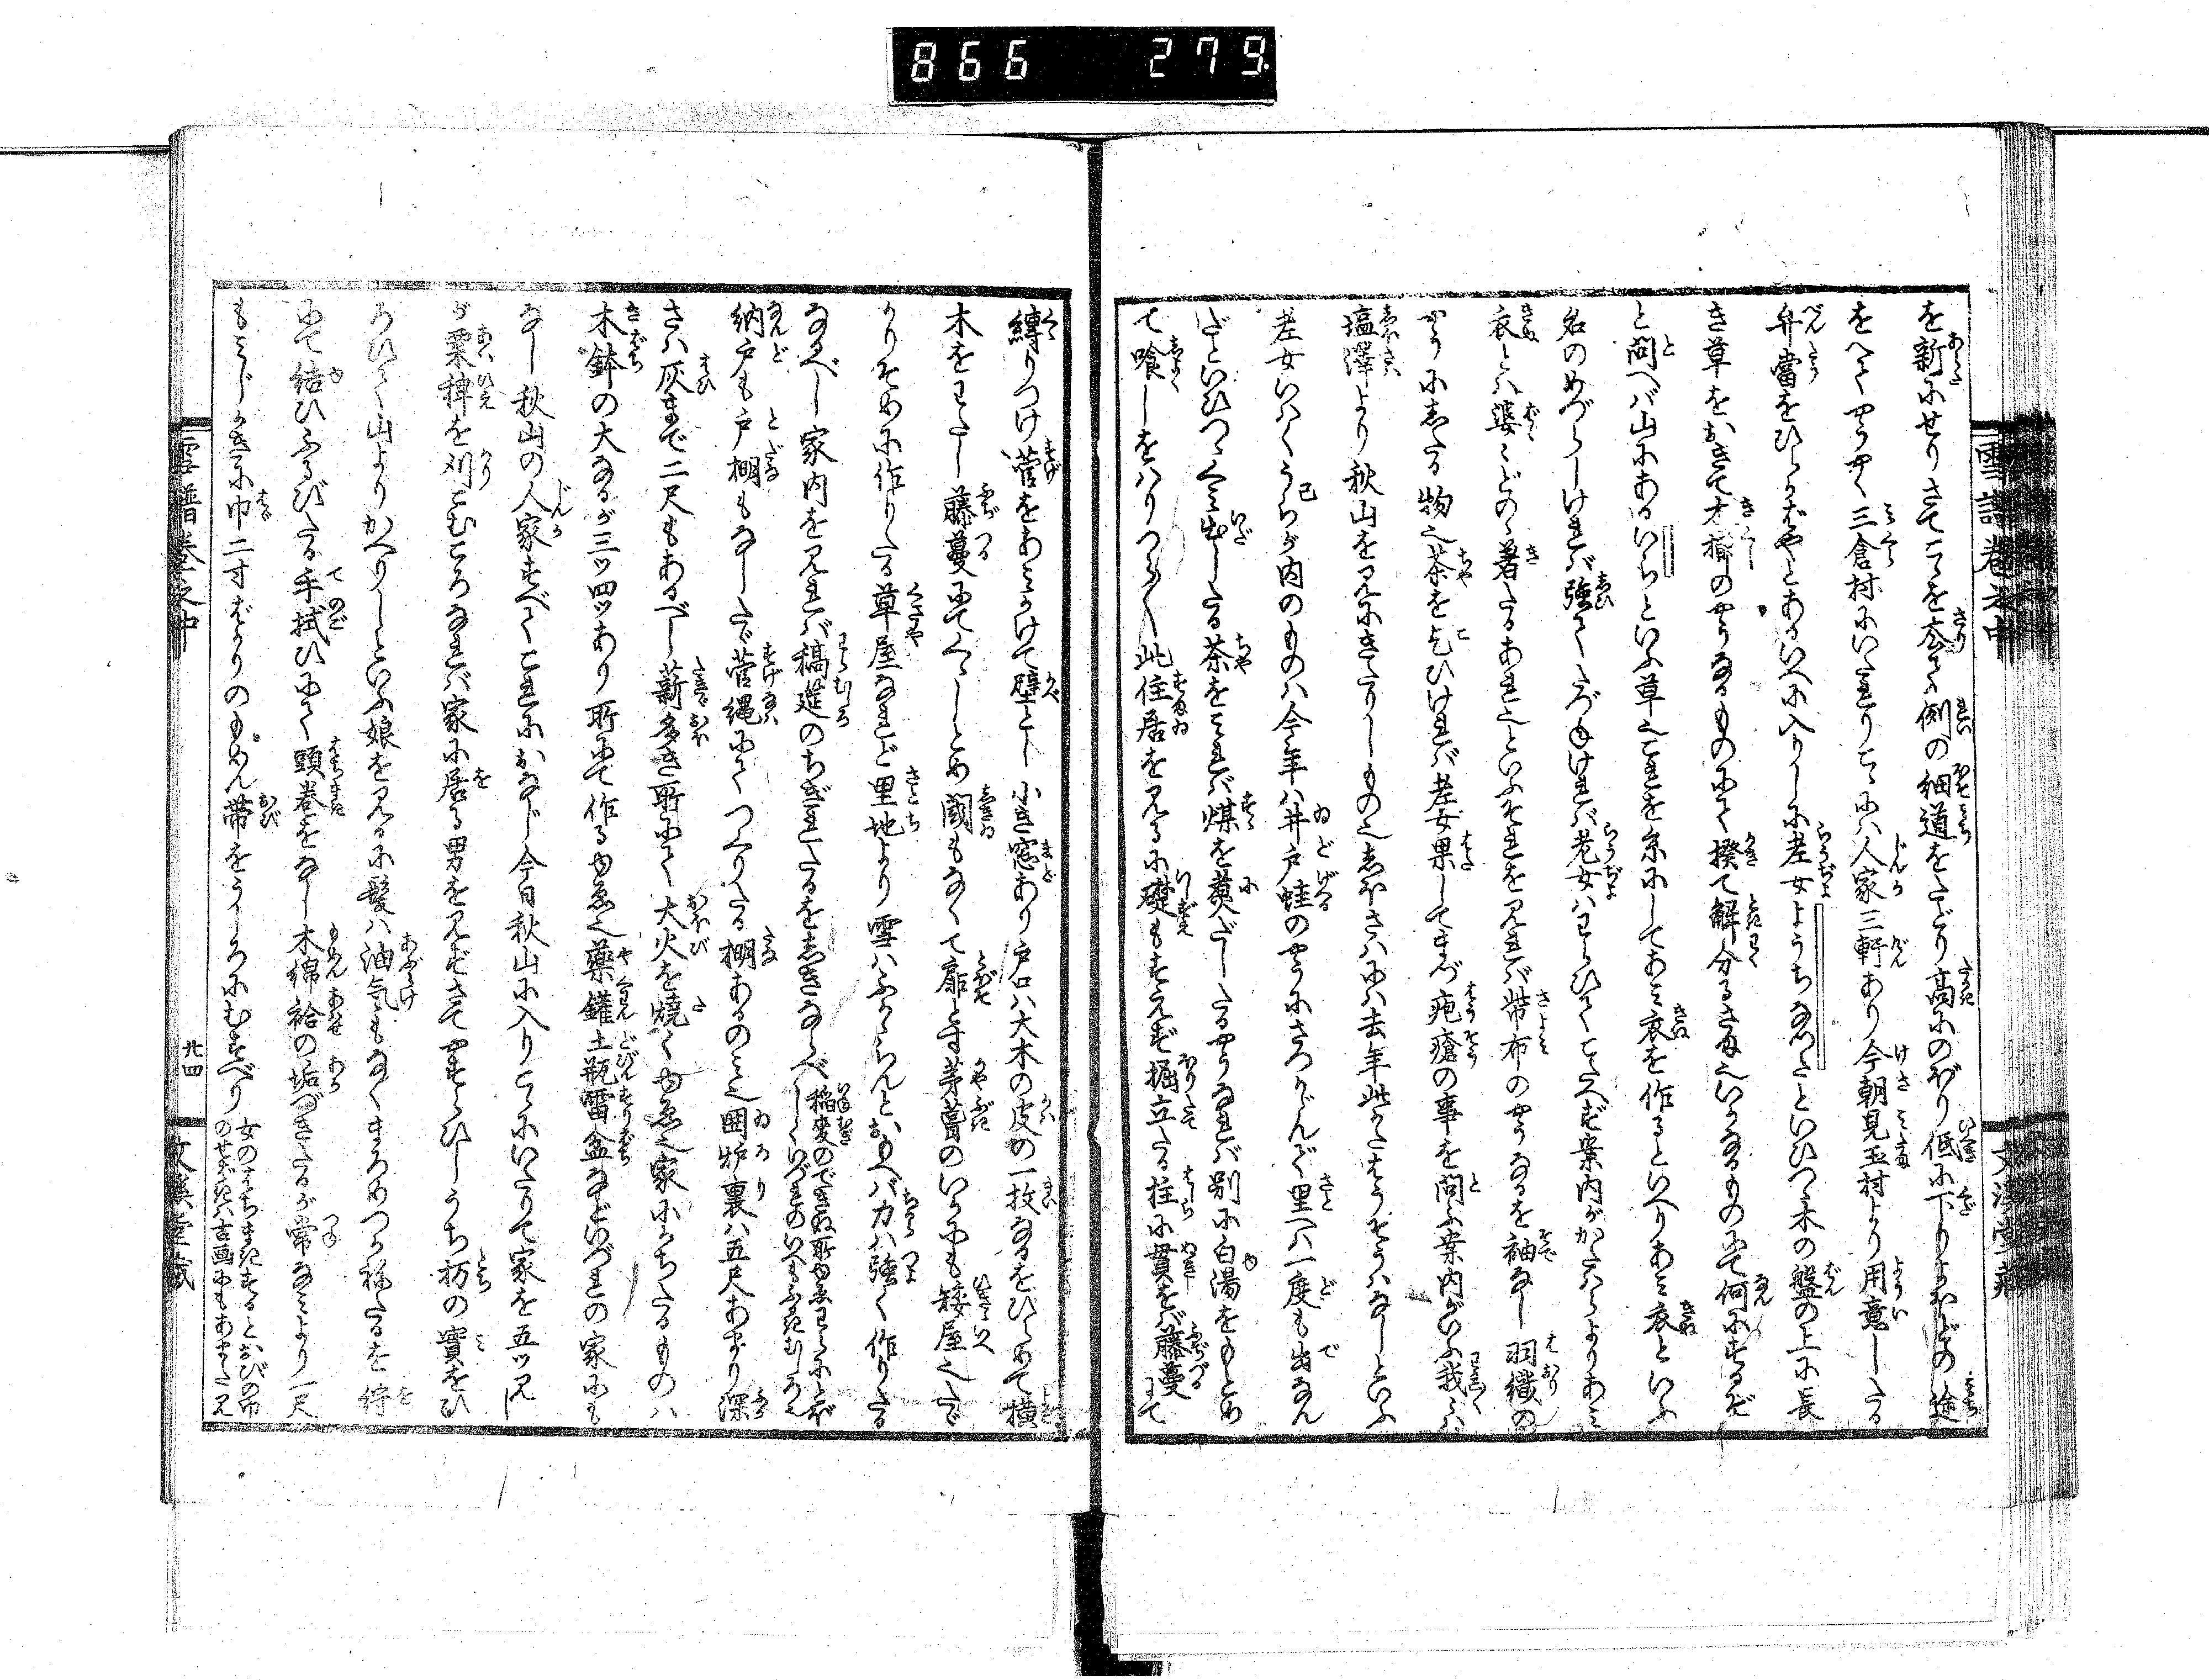 866 279
雪譜巻之中
文渓堂蔵
を新にせりさてこゝを去て例の細道をたどり高にのぼり低に下りよほどの途
をへてやうやく三倉村にいたれりこゝには人家三軒あり今朝見玉村より用意したる
弁当をひらかばやとあるいへに入りしに老女ようちなつたといひつゝ木の盤の上に長
き草をおきて木櫛のやうなるものにて掻て解分るさま也いかなるものにて何にするぞ
と問へバ山にあるいらといふ草也これを糸にしてあみ衣を作るといへりあみ衣といふ
名のめづらしけれバ強てたづねけれバ老女ハわらひてこたへず案内がかたハらよりあみ
衣とハ婆ゝどのゝ著たるあれ也といふそれを見れバ※布のやうなるを袖なし羽織の
やうにしたる物也茶を乞ひけれバ老女果してまづ疱瘡の事を問ふ案内がいふ我々ハ
塩澤より秋山を見にきたりしもの也しほさハにハ去年此かたはうそうハなしといふ
老女いハくうらが内のものハ今年ハ井戸蛙のやうにさつかどんで里へハ一度も出なん
だといひつゝくみ出したる茶をみれバ煤を煮だしたるやうなれバ別に白湯をもとめ
て喰しをハりつら〳〵此住居を見るに礎もすえず掘立たる柱に貫をバ藤蔓にて
縛りつけ菅をあみかけて壁とし小き窓あり戸口ハ大木の皮の一枚なるをひらめて横
木をわたし藤蔓にてくゝしとめ閾もなくて扉とす茅葺のいかにも矮屋也たゞ
かりそめに作りたる草屋なれど里地より雪ハふかゝらんとおもへバ力ハ強く作りたる
なるべし家内を見れバ稿筵のちぎれたるをしきならべ稲麦のできぬ所ゆゑわらにとぼしくいづれのいへもふるきむしろ也
納戸も戸棚もなしたゞ菅縄にてつくりたる棚あるのミ也囲炉裏ハ五尺あまり深
さハ灰まで二尺もあるべし薪多き所にて大火を焼くゆゑ也家にかちたるものハ
木鉢の大なるが三ッ四ッあり所にて作るゆゑ也薬鑵土瓶雷盆などいづれの家にも
なし秋山の人家すべてこれにおなじ今日秋山に入りこゝにいたりて家を五ッ見し
が粟稗を刈こむころなれバ家に居る男を見ずさてやすらひしうち栃の實をひ
ろひて山よりかへりしといふ娘を見るに髪ハ油気もなくまろめつかねたるを紵
にて結ひふるびたる手拭ひにて頭巻をなし木綿袷の垢づきたるが常なみより一尺
もミじかきに巾二寸ばかりのもめん帯をうしろにむすべり女のはちまきするとおびの巾のせまきハ古画にもあまた見
雪譜巻之中
廿四
文渓堂蔵